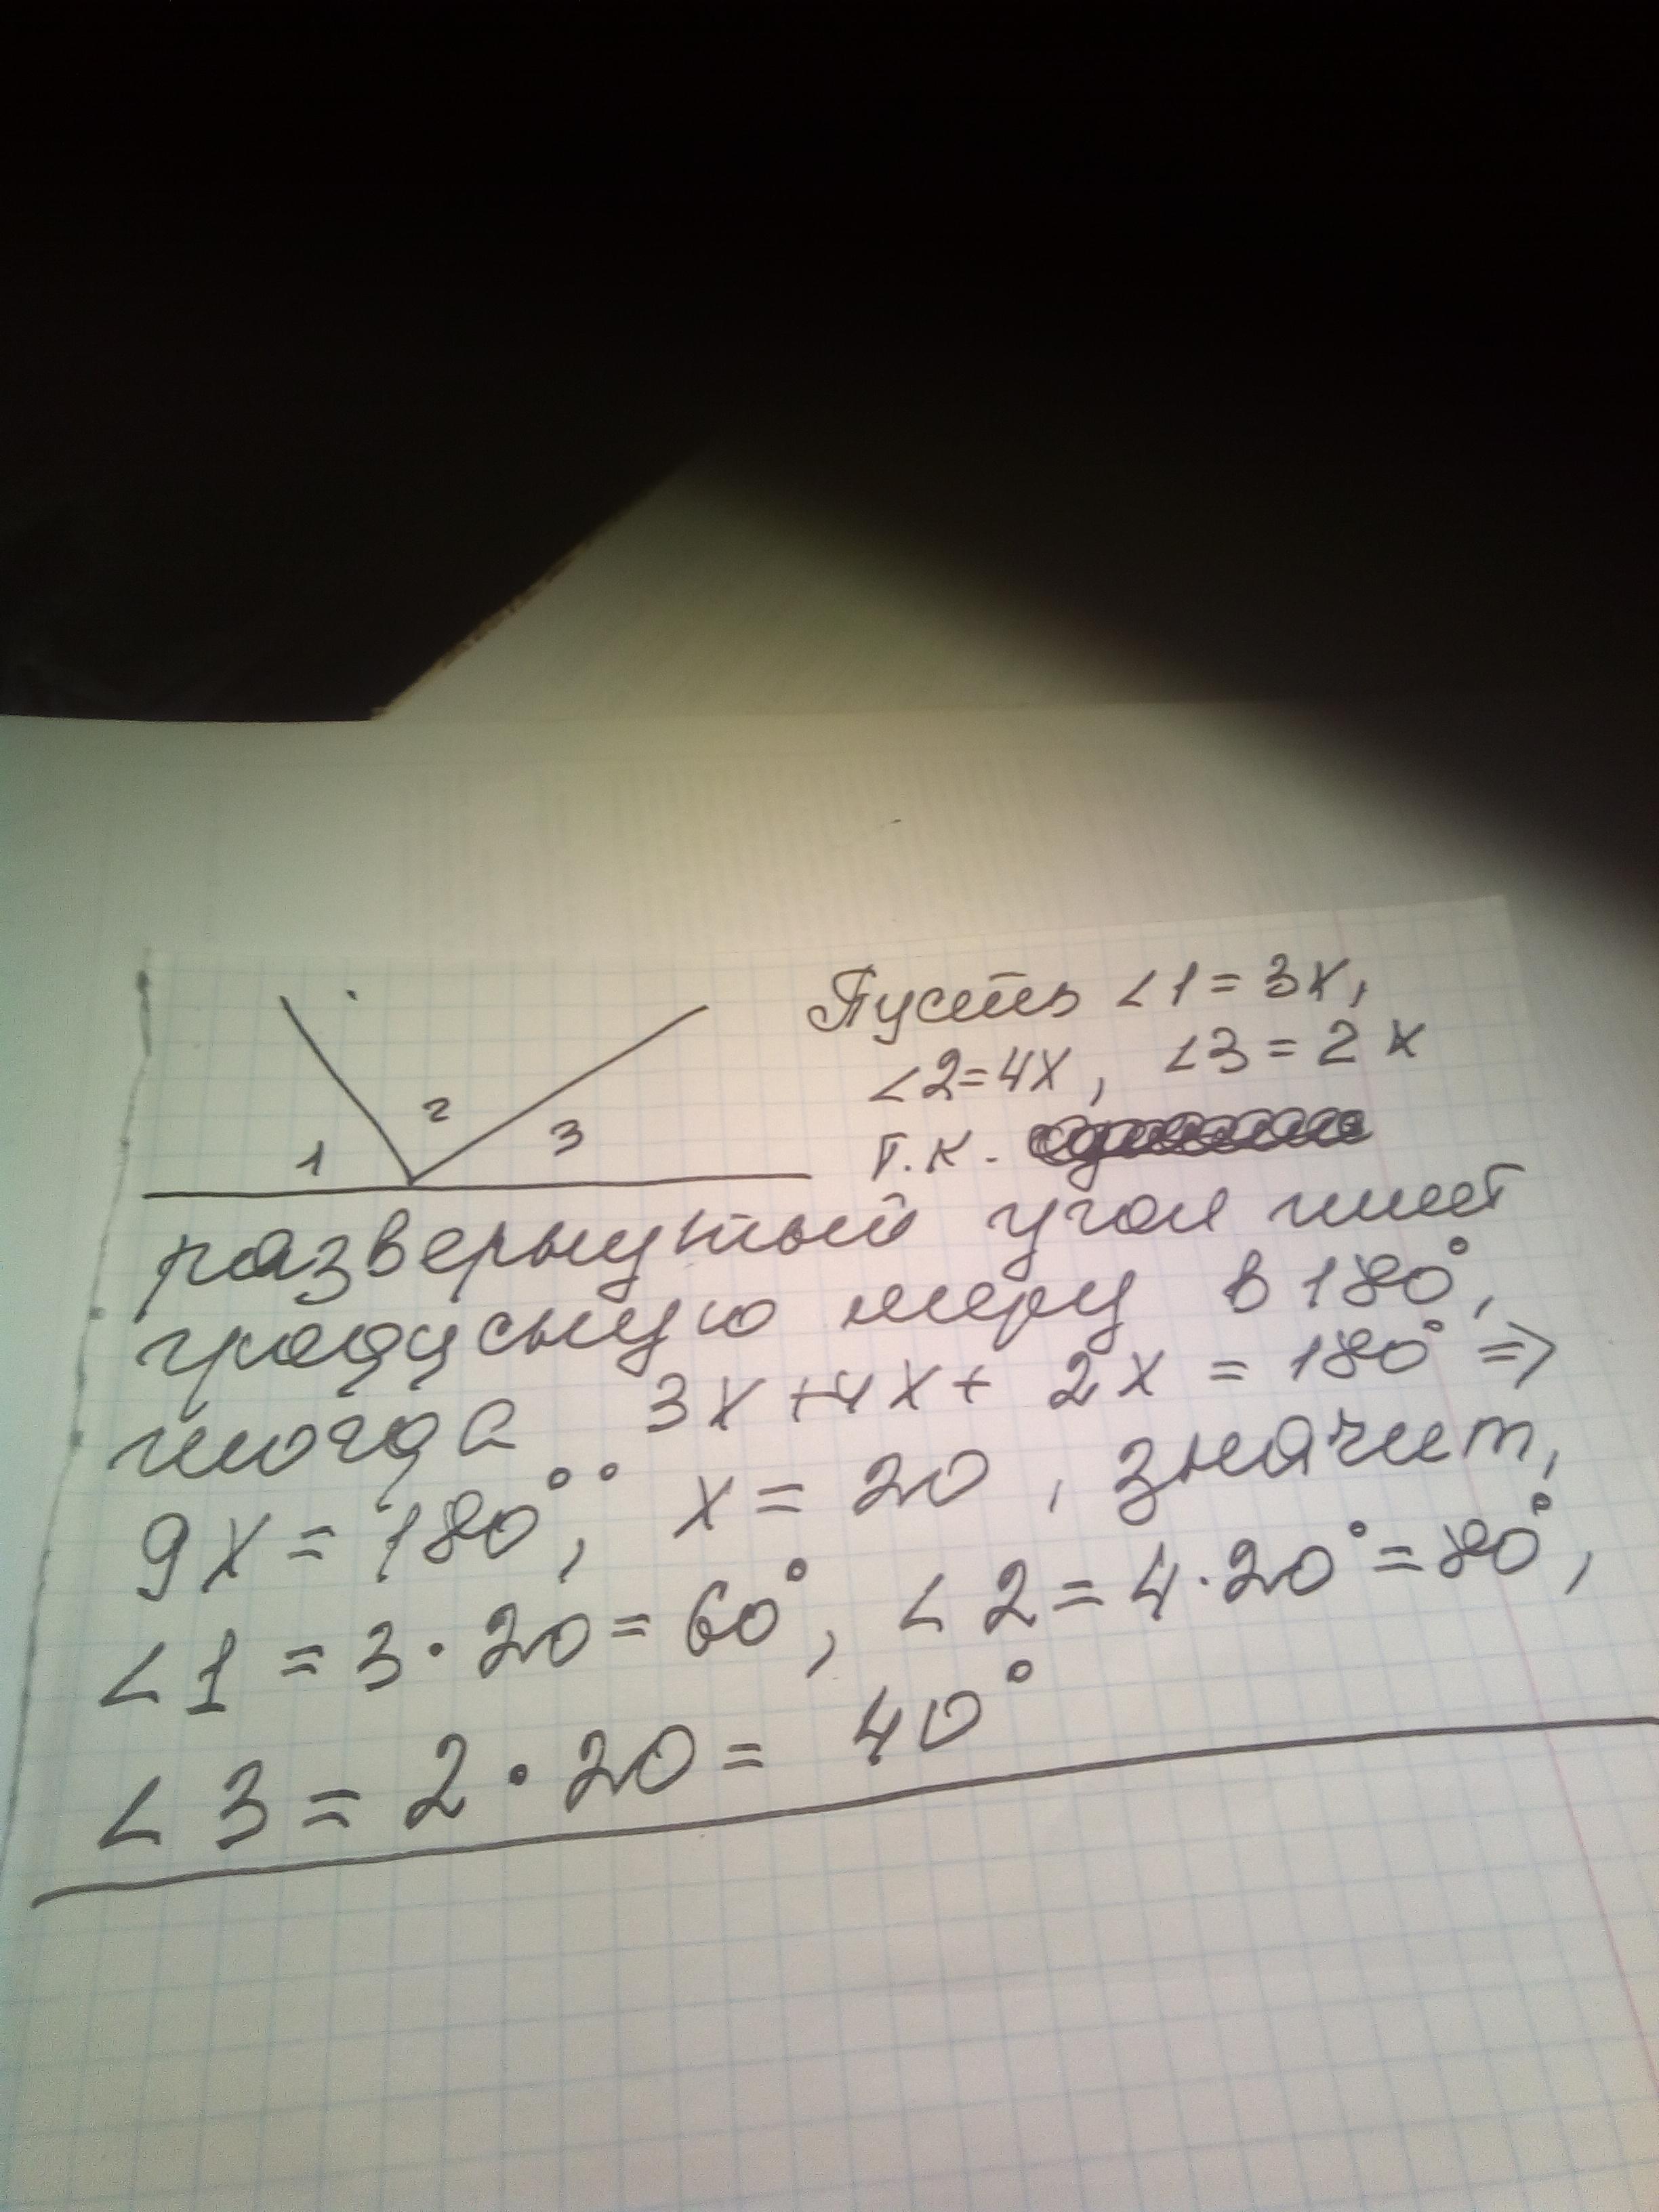 1 2 3
Пусть ∠1 = 3x,
∠2=4x, ∠3 = 2x
т.к.
развернутый угол имеет
градусную меру в 180°,
тогда 3x+4x+ 2x = 180° =>
9x = 180°, x = 20°, значит,
∠1 = 3·20 = 60°, ∠2 = 4·20° = 80°,
∠3 = 2·20 = 40°